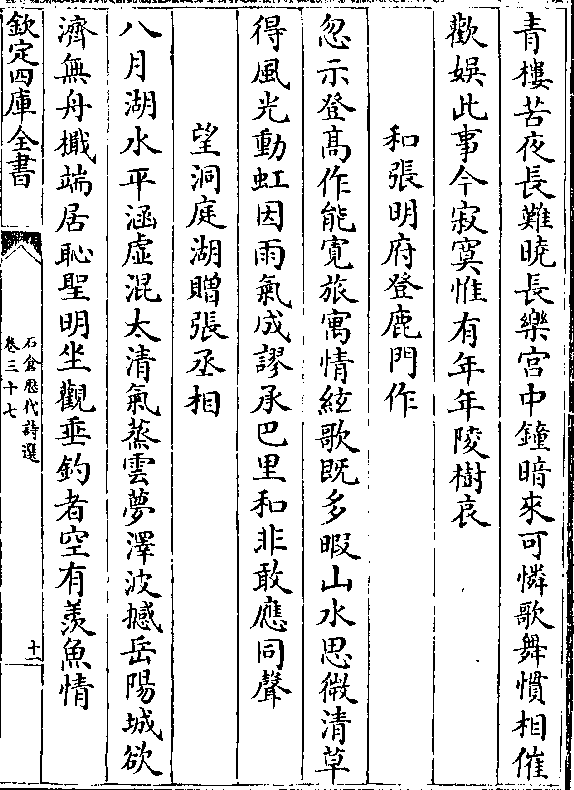 青樓苦夜長難曉長樂宮中鐘暗來可憐歌舞慣相催
歡娛此事今寂寞惟有年年陵樹哀
和張明府登鹿門作
忽示登高作能寛旅寓情絃歌既多暇山水思微清草
得風光動虹因雨氣成謬承巴里和非敢應同聲
望洞庭湖贈張丞相
八月湖水平涵虛混太清氣蒸雲夢澤波撼岳陽城欲
濟無舟檝端居恥聖明坐觀垂釣者空有羨魚情
欽定四庫全書
石倉歷代詩選
卷三十七
十一